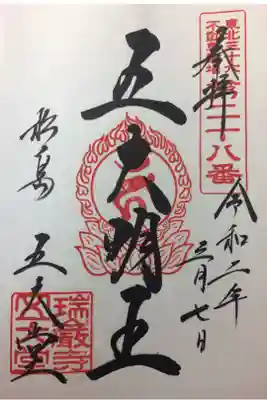 東北三十六
不動尊霊場
第二十八番
奉拝
令和二年
三月七日
五大明王
松島 五大堂
瑞巖寺
五大堂